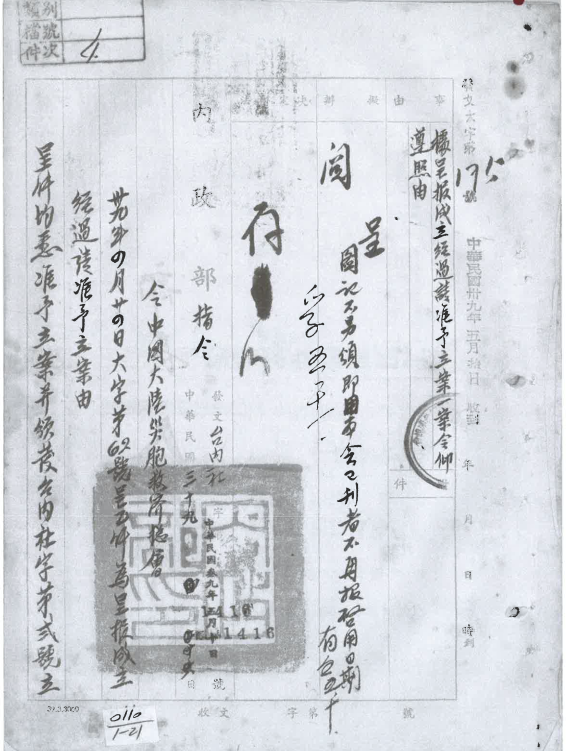 類別
檔號
件次
4.
收文大字第175號
中華民國卅九年五月拾日收到
年 月 日 時到
事由
擬辦
決定
據呈報成立經過請准予立案一案令仰
遵照由
件
呈
閱
圖記不另頒即由本會已刊者不再報啓用日期
存
五、十、
內政部指令
發文台內社
中華民國三十九
字
中華民國叁九年五月十日
1416
號
令中國大陸災胞救濟總會
卅九年四月廿四日大字第62號呈五件為呈報成立
經過請准予立案由
呈件均悉准予立案并頒發台內社字第弍號立
收文 字第 號
39.3.3000
0110
1-21